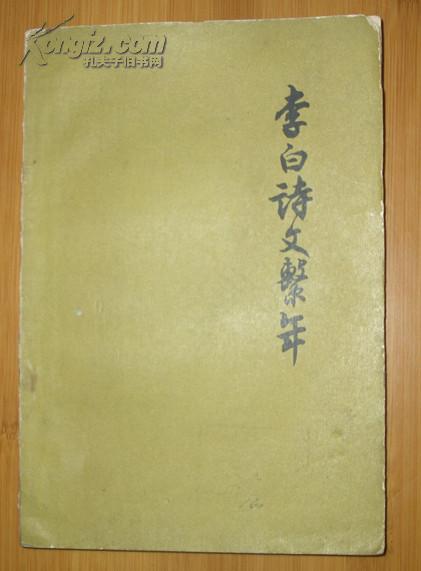 Kongfz.com
孔夫子旧书网
李白詩文繫年